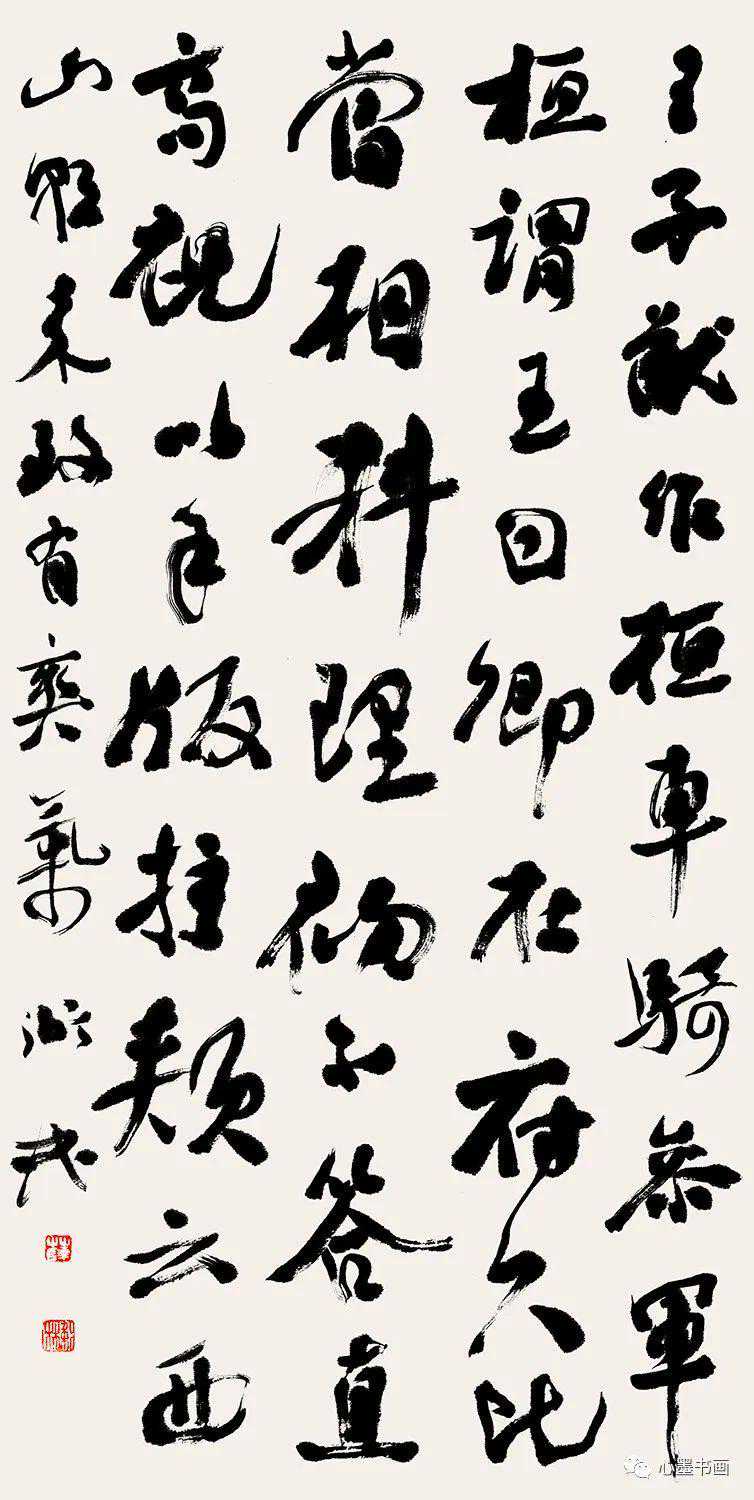 王子猷作桓車騎参軍
桓謂王曰卿在府久比
當相料理初不答直
高視以手版拄頰云西
山朝来致有爽氣
心墨书画